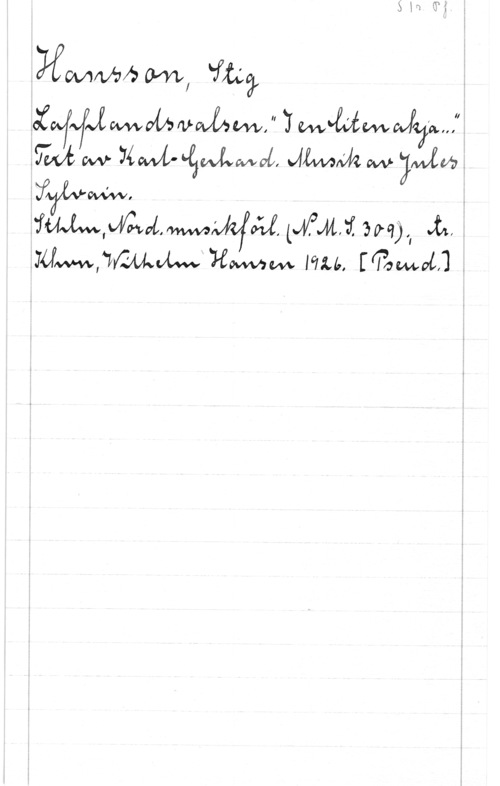 S 1 r Pf.
Hansson, Stig
Lapplandsvalsen. "I en liten akja..."
Text av Karl-Gerhard. Musik av Jules
Sylvain.
Sthlm, Nord. musikförl. (N.M.S. 309); tr.
Khvn, Wilhelm Hansen 1926. [Pseud.]